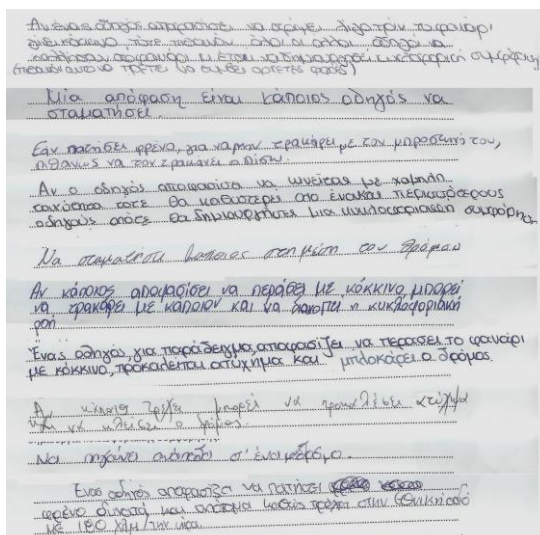 Αν ένας οδηγός αποφασίσει να στρίψει λίγο πριν το φανάρι
γίνει κόκκινο, τότε πιθανόν όλοι οι άλλοι οδηγοί να
και έτσι να δημιουργηθεί κυκλοφοριακή συμφόρηση
(πιθανόν αυτό να πρέπει να συμβεί αρκετές φορές)
Μία απόφαση είναι κάποιος οδηγός να
σταματήσει.
Εάν πατήσει φρένο, για να μην τρακάρει με τον μπροστινό του,
πιθανώς να τον τρακάρει ο πίσω.
Αν ο οδηγός αποφασίσει να κινείται με χαμηλή
ταχύτητα τότε θα καθυστερεί από έναν και περισσότερους
οδηγούς οπότε θα δημιουργήσει μια κυκλοφοριακή συμφόρηση
Να σταματήσει κάποιος στη μέση του δρόμου
Αν κάποιος αποφασίσει να περάσει με κόκκινο, μπορεί
να τρακάρει με κάποιον και να διακοπεί η κυκλοφοριακή
ροή
Ένας οδηγός, για παράδειγμα, αποφασίζει να περάσει το φανάρι
με κόκκινο, προκαλείται ατύχημα και μπλοκάρει ο δρόμος.
Αν κάποιος τρέχει μπορεί να προκαλέσει ατύχημα
και να κλείσει ο δρόμος.
Να πηγαίνει ανάποδα σ' ένα μεδρόμο.
Ένας οδηγός αποφασίζει να πατήσει
φρένο δυνατά και απότομα καθώς τρέχει στην Εθνική οδό
με 180 χλμ/την ώρα.